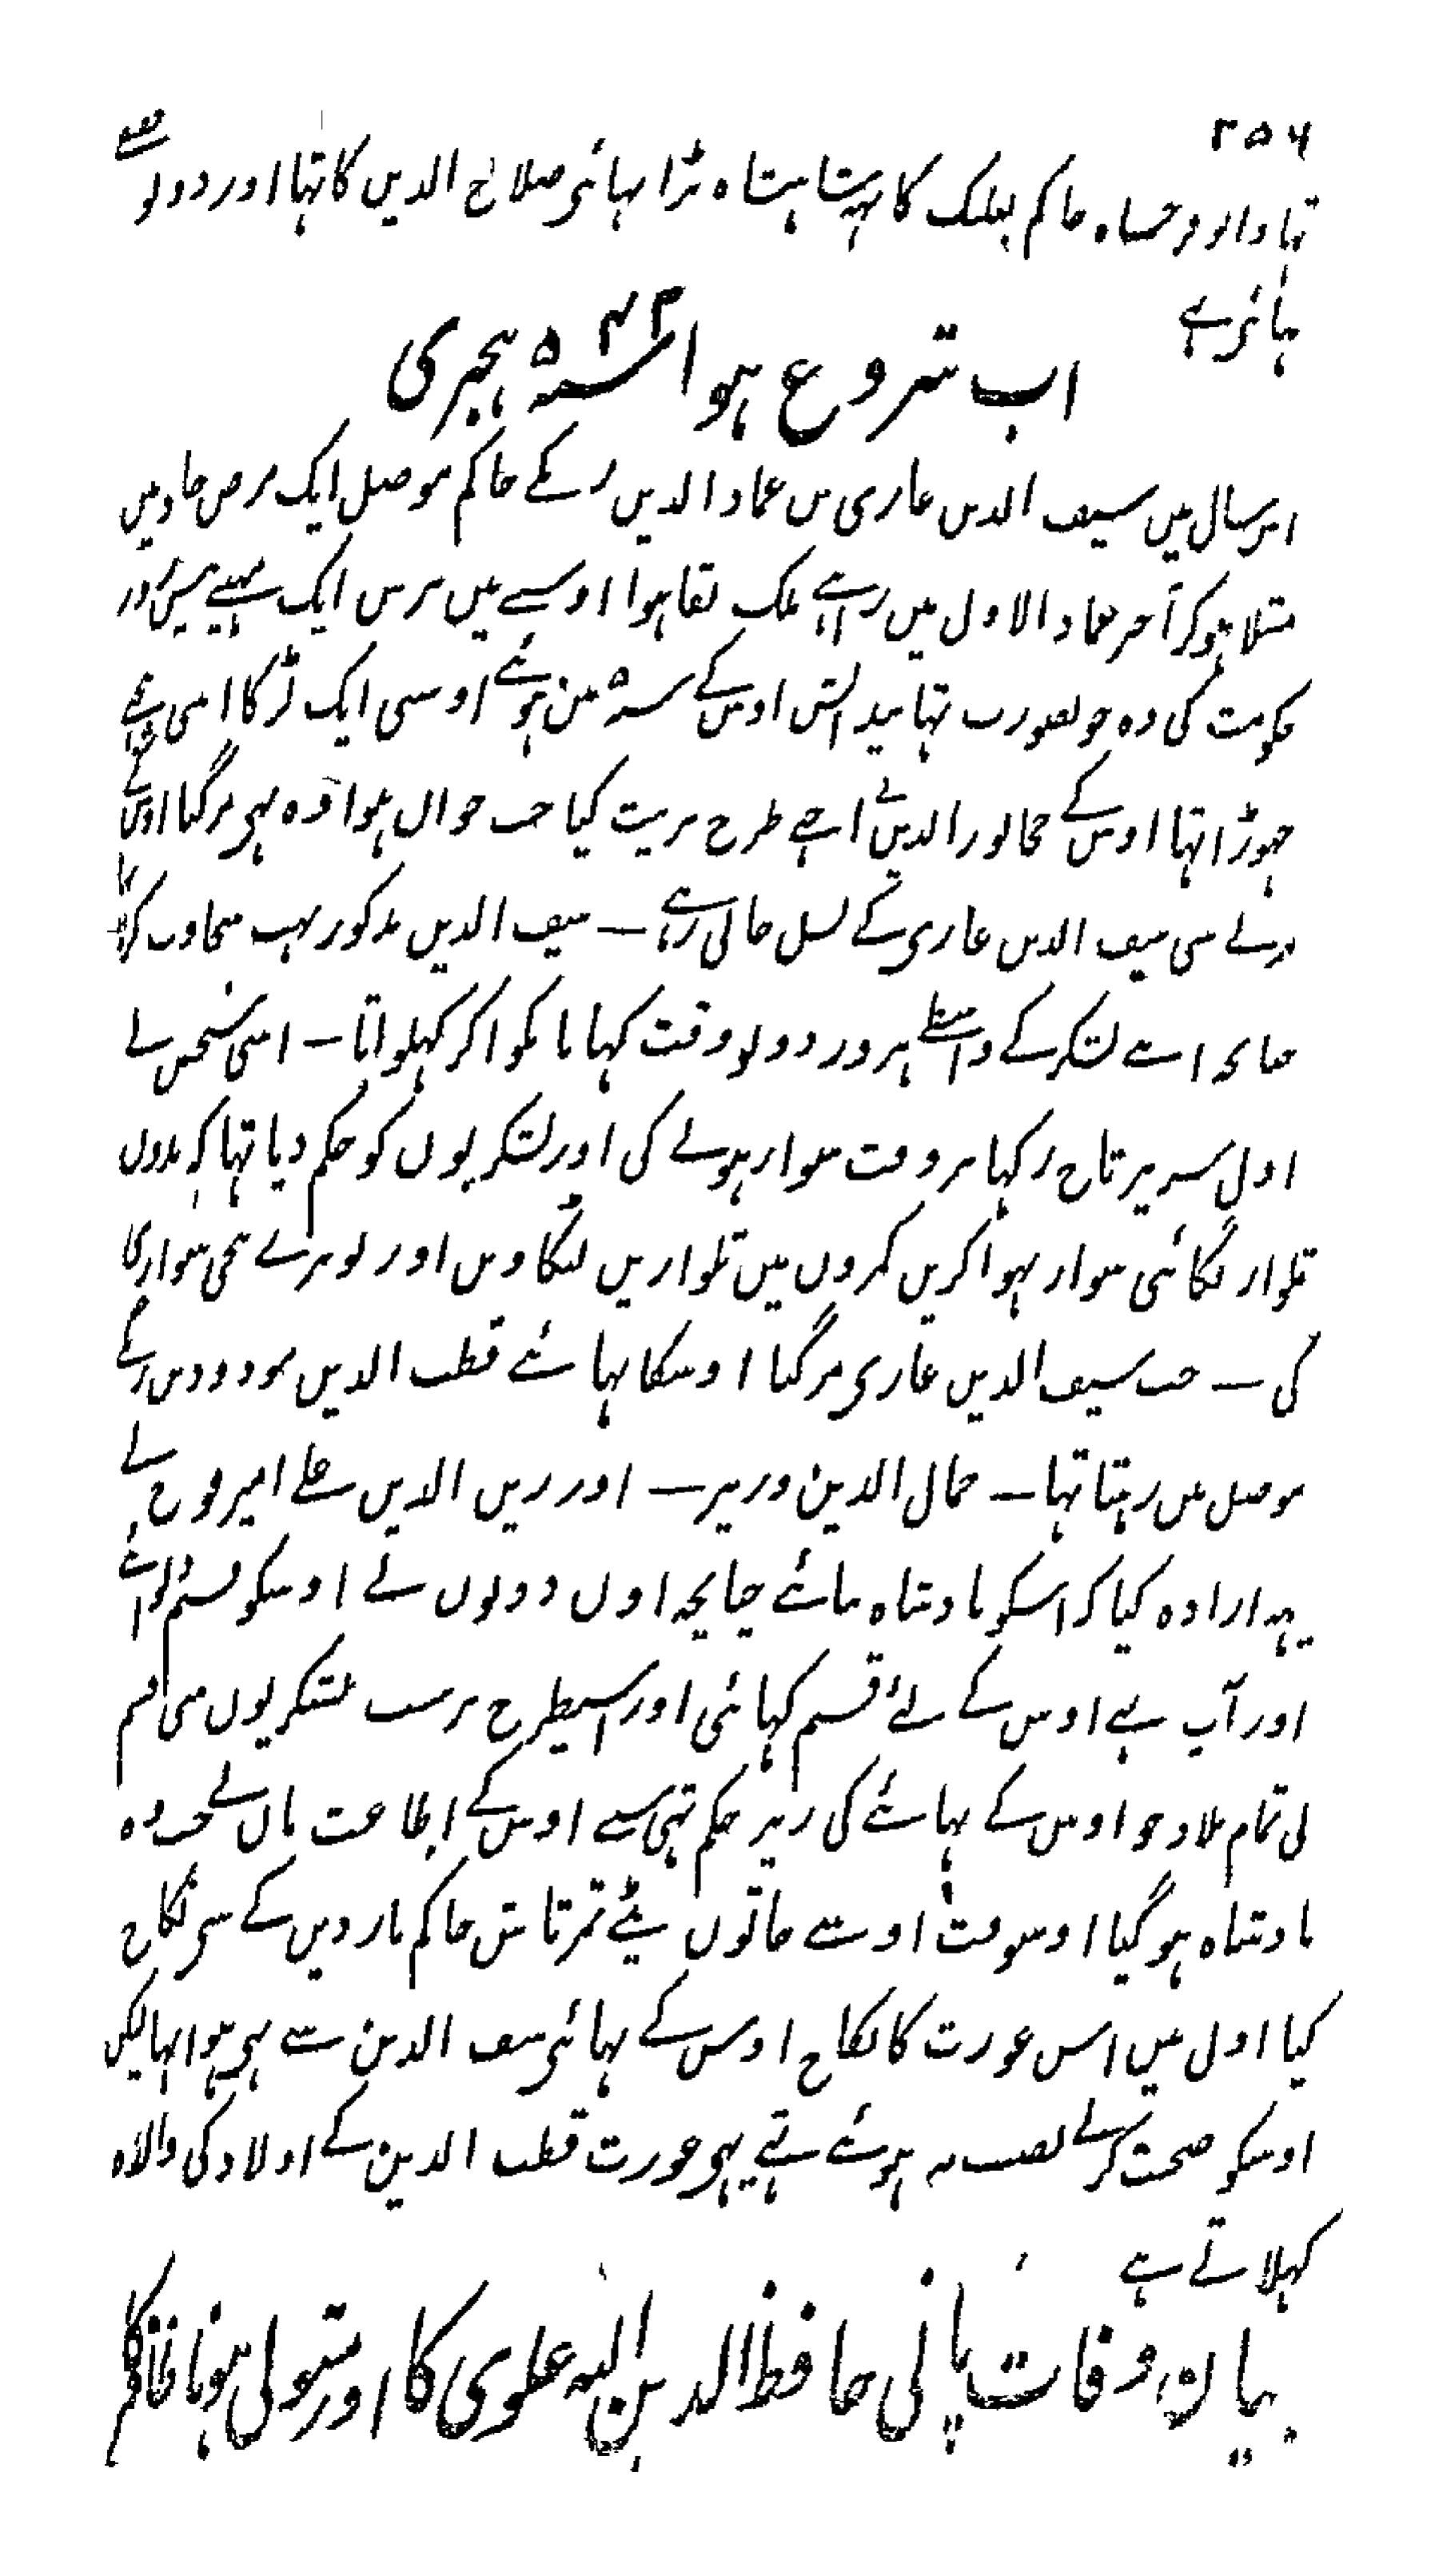 ۲۵۶
تہا والو فرخشاہ حاکم بعلبک کا شہنشاہ بڑا بہائی صلاح الدین کا تہا اور دولو سگے
بہائی ہے
اب شروع ہوا سنہ ۵۴۴ ہجری
اس سال میں سیف الدین غازی بن عماد الدین زنگے حاکم موصل ایک مرض حاد میں
مبتلا ہوکر آخر جماد الاول میں راہے ملک بقا ہوا اوسے تین برس ایک مہینے بیس روز
حکومت کی وہ خوبصورت تہا پیدائش اوس کے سنہ ۵ میں ہوئے اوسی ایک لڑکا اسی
چہوڑا تہا اوس کے چچا نور الدین نے اچہے طرح تربیت کیا جب جوان ہوا وہ بہی مرگیا اوس کے
مرنے سی سیف الدین غازی کے نسل جاتی رہے – سیف الدین مذکور بہت سخاوت کرتا
چنانچہ اپنے لشکر کے واسطے ہر روز دولو وقت کہانا پکوا کر کہلواتا – اسی شخص نے
اول سر پر تاج رکہا بر وقت سوار ہونے کی اور لشکریوں کو حکم دیا تہا کہ بدون
تلوار لگائی سوار نہوا کریں کمروں میں تلواریں لٹکاویں اور تبرے بہی سواری کا
کی – جب سیف الدین غازی مرگیا اوسکا بہائے قطب الدین مودود بن زنگے
موصل میں رہتا تہا – جمال الدین وزیر – اور زین الدین علے امیر فوج نے
یہہ ارادہ کیا کہ اسکو بادشاہ بنائے چنانچہ اول دونوں نے اوسکو قسم دلوائے
اور آپ بے اوس کے لئے قسم کہائی اور اسیطرح پر سب لشکریوں سی قسم
لی تمام بلاد جو اوس کے بہائے کی زیر حکم تہی سبے اوس کے اطاعت مان لے جب وہ
بادشاہ ہوگیا اوسوقت اوسے خاتون بیٹے تمرتاش حاکم ماردین کے سی نکاح
کیا اول میں اس عورت کا نکاح اوس کے بہائی سیف الدین سے بہی ہوا تہا لیکن
اوسکو صحبت کرنے نصیب نہ ہوئے تہے یہی عورت قطب الدین کے اولاد کی والدہ
کہلاتے ہے
بیان وفات پانی حافظ الدین اللہ علوی کا اور متولی ہونا ظافر کا